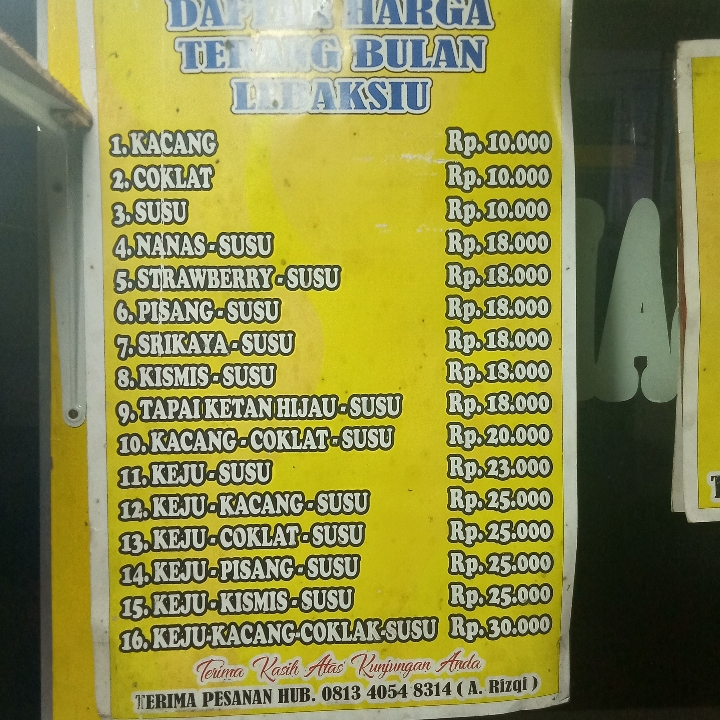 DAFTAR HARGA
TERANG BULAN
LEBAKSIU
1. KACANG Rp. 10.000
2. COKLAT Rp. 10.000
3. SUSU Rp. 10.000
4. NANAS - SUSU Rp. 18.000
5. STRAWBERRY - SUSU Rp. 18.000
6. PISANG - SUSU Rp. 18.000
7. SRIKAYA - SUSU Rp. 18.000
8. KISMIS - SUSU Rp. 18.000
9. TAPAI KETAN HIJAU - SUSU Rp. 18.000
10. KACANG - COKLAT - SUSU Rp. 20.000
11. KEJU - SUSU Rp. 23.000
12. KEJU - KACANG - SUSU Rp. 25.000
13. KEJU - COKLAT - SUSU Rp. 25.000
14. KEJU - PISANG - SUSU Rp. 25.000
15. KEJU - KISMIS - SUSU Rp. 25.000
16. KEJU-KACANG-COKLAK-SUSU Rp. 30.000
Terima Kasih Atas Kunjungan Anda
TERIMA PESANAN HUB. 0813 4054 8314 ( A. Rizqi )